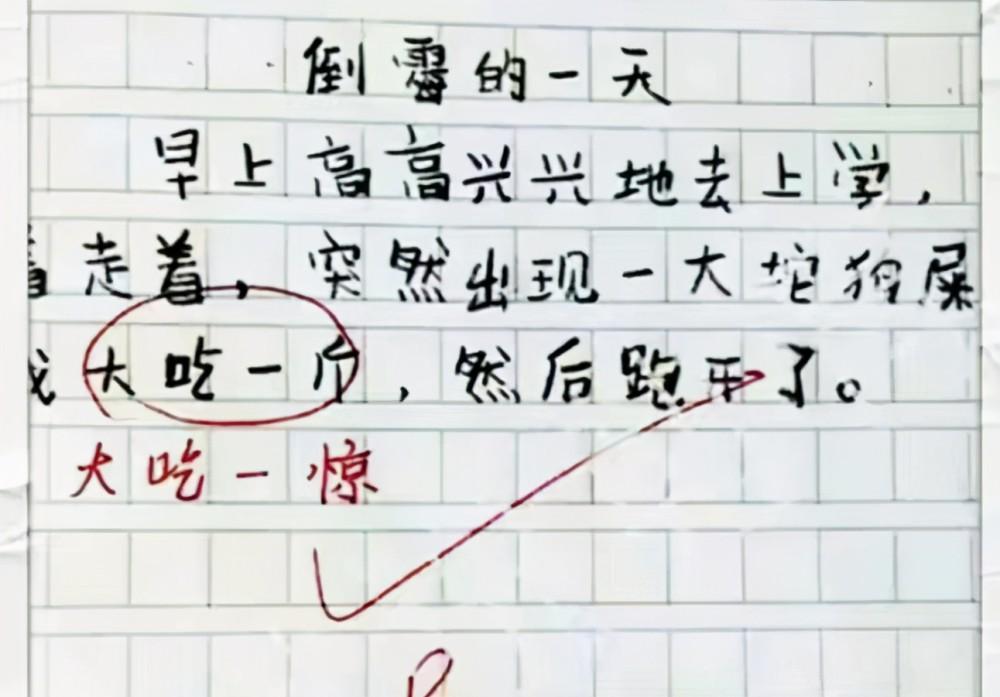 倒霉的一天
早上高高兴兴地去上学，
着走着，突然出现一大坨狗屎
我大吃一斤，然后跑开了。
大吃一惊